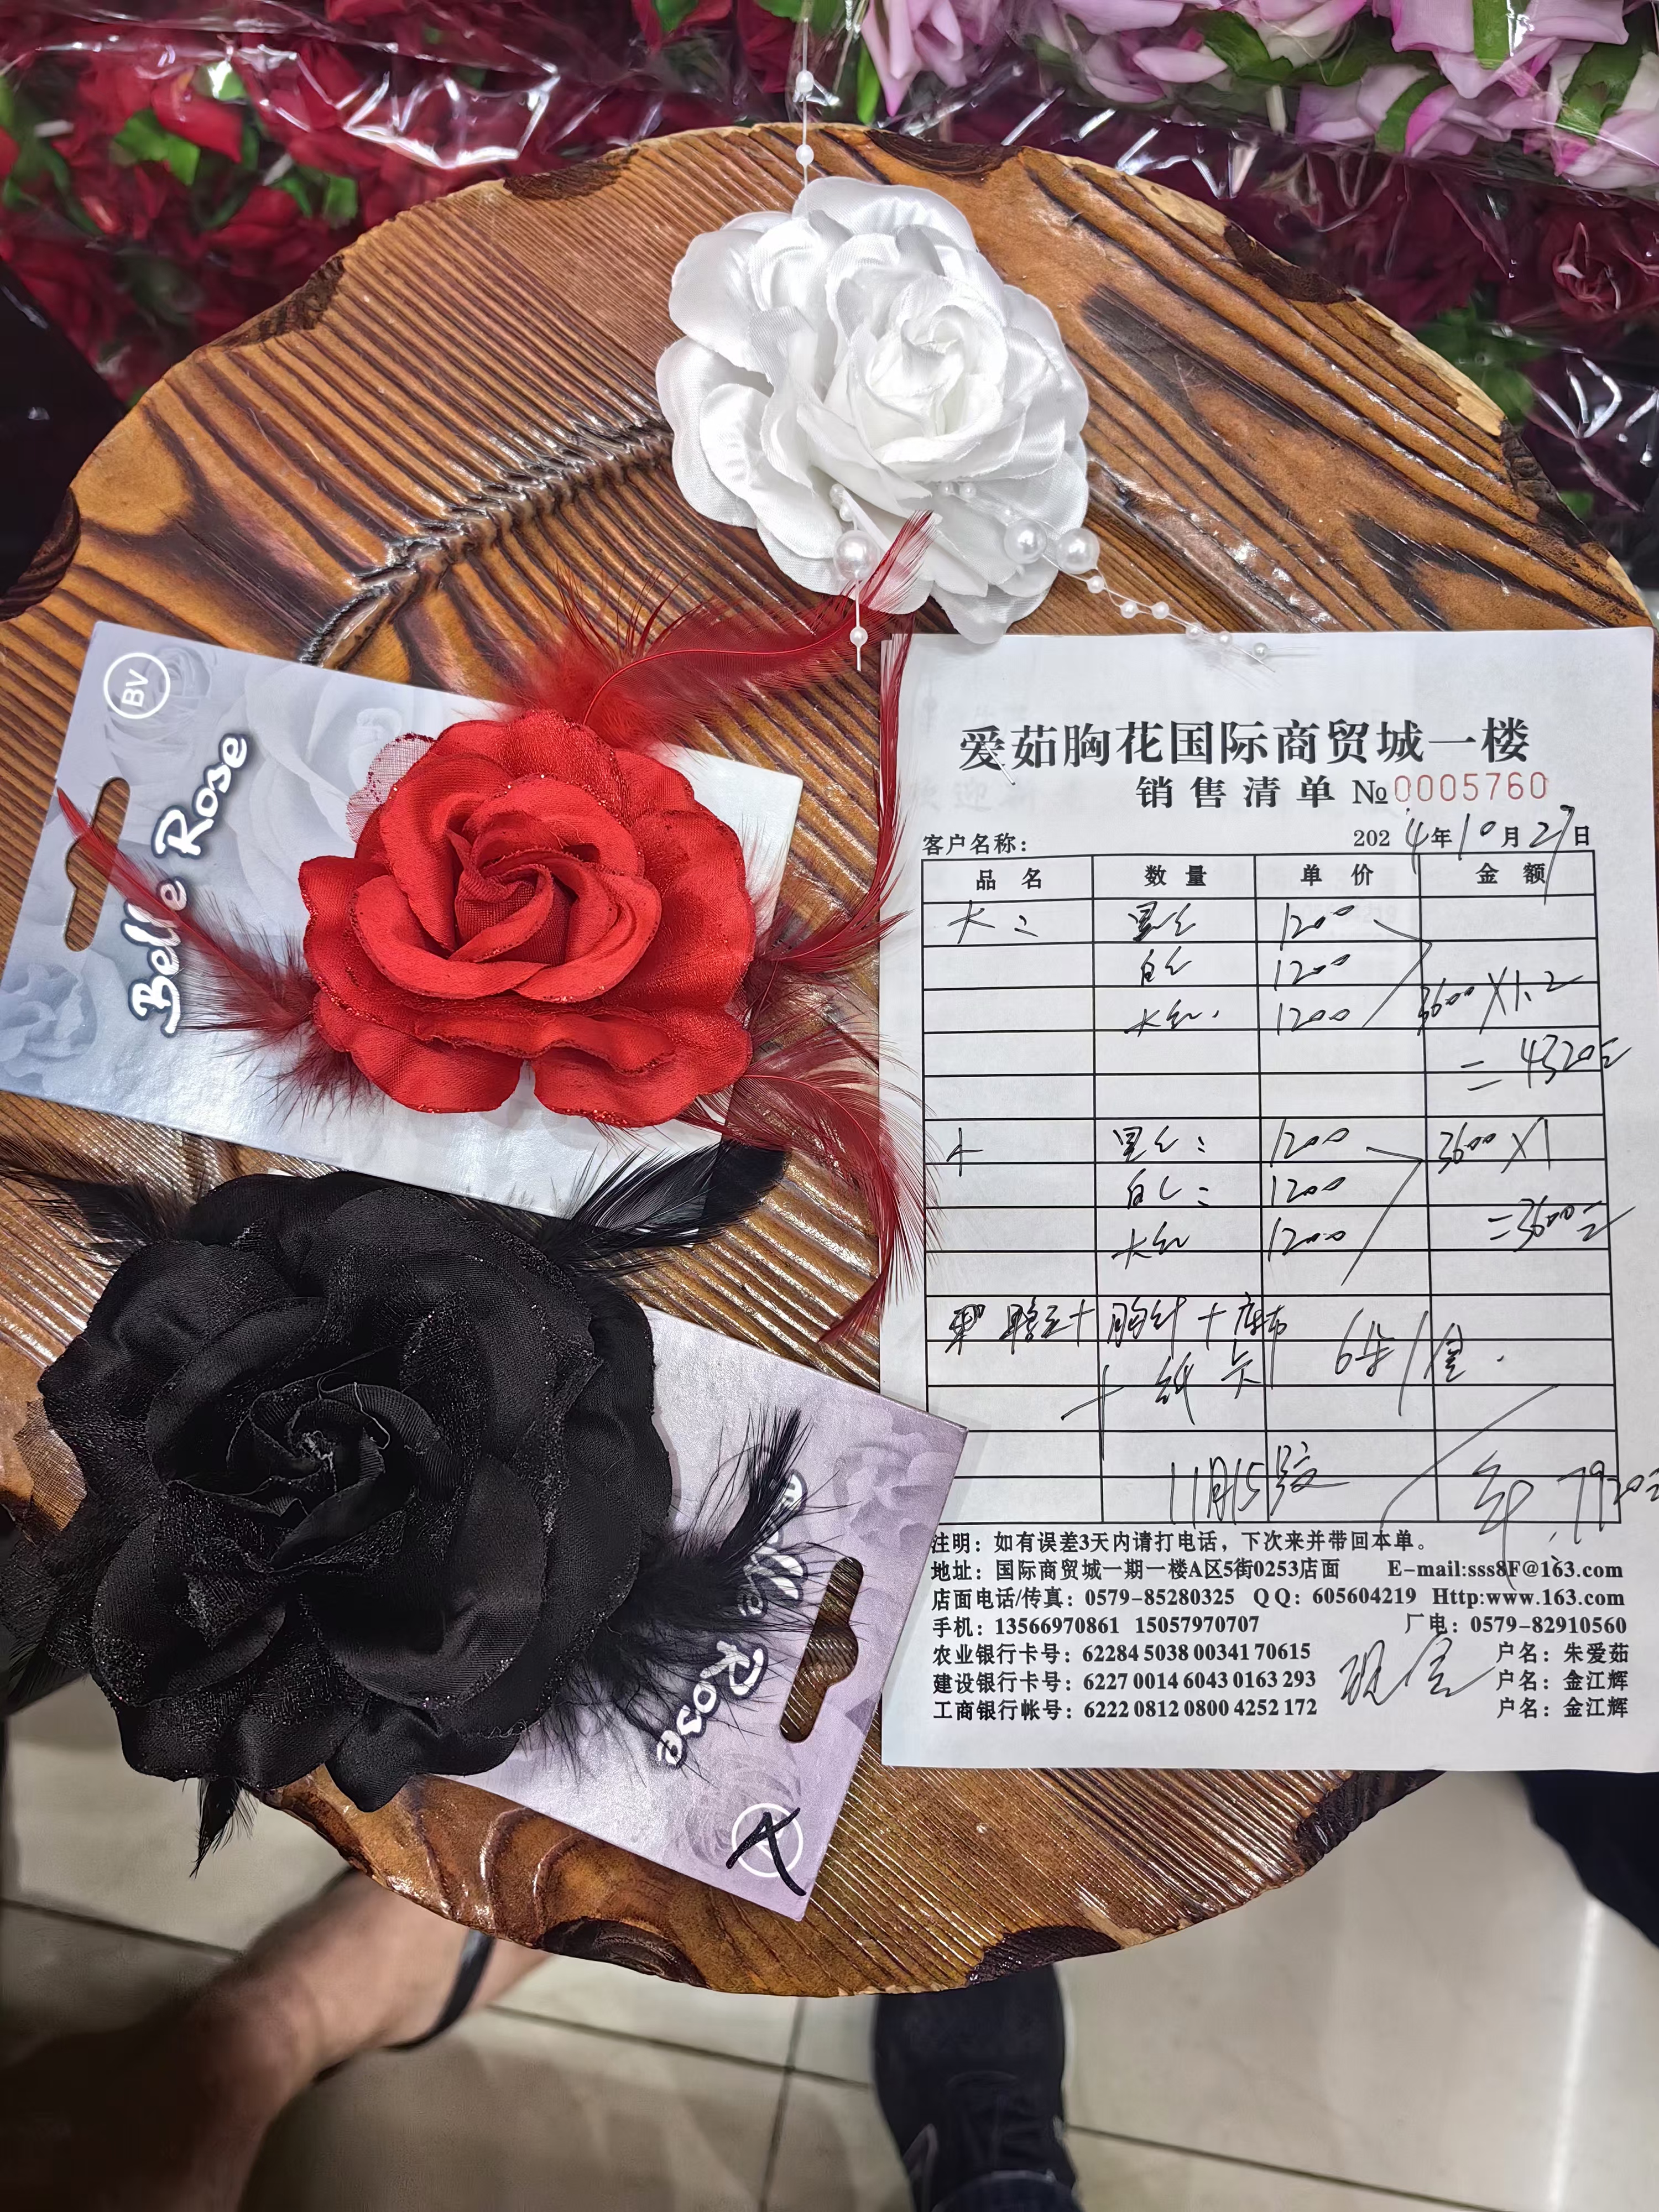 BV
Belle Rose
Belle Rose
爱茹胸花国际商贸城一楼
销售清单 №0005760
客户名称： 2024年10月27日
品 名 数 量 单 价 金 额
大 1200
白 1200
大红 1200 3600 X1.2
= 4320元
1200 3600 X1
白 1200
大红 1200 =3600元
+ 胸针 +
+ 纸卡 6朵/
11月15 7920元
注明：如有误差3天内请打电话，下次来并带回本单。
地址：国际商贸城一期一楼A区5街0253店面 E-mail:sss8F@163.com
店面电话/传真：0579-85280325 QQ：605604219 Http:www.163.com
手机：13566970861 15057970707 厂电：0579-82910560
农业银行卡号：62284 5038 00341 70615 户名：朱爱茹
建设银行卡号：6227 0014 6043 0163 293 户名：金江辉
工商银行帐号：6222 0812 0800 4252 172 户名：金江辉
现金